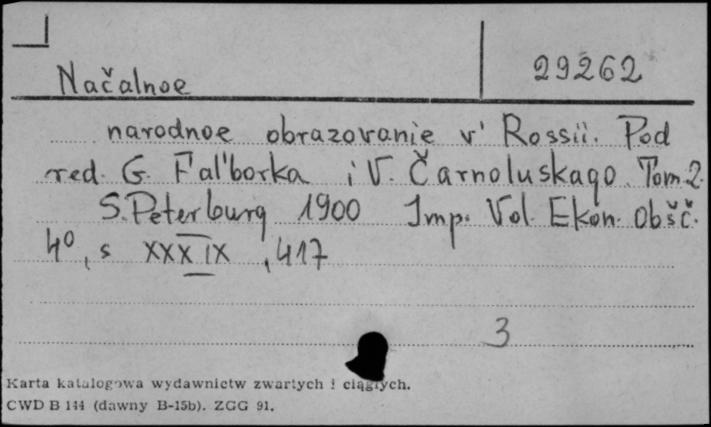 Načalnoe
29262
narodnoe obrazovanie v' Rossii. Pod
red. G. Fal'borka i V. Čarnoluskago. Tom 2.
S. Peterburg 1900 Imp. Vol. Ekon. Obšč.
4°, s XXXIX, 417
3
Karta katalogowa wydawnictw zwartych i ciągłych.
CWD B 144 (dawny B-15b). ZGG 91.